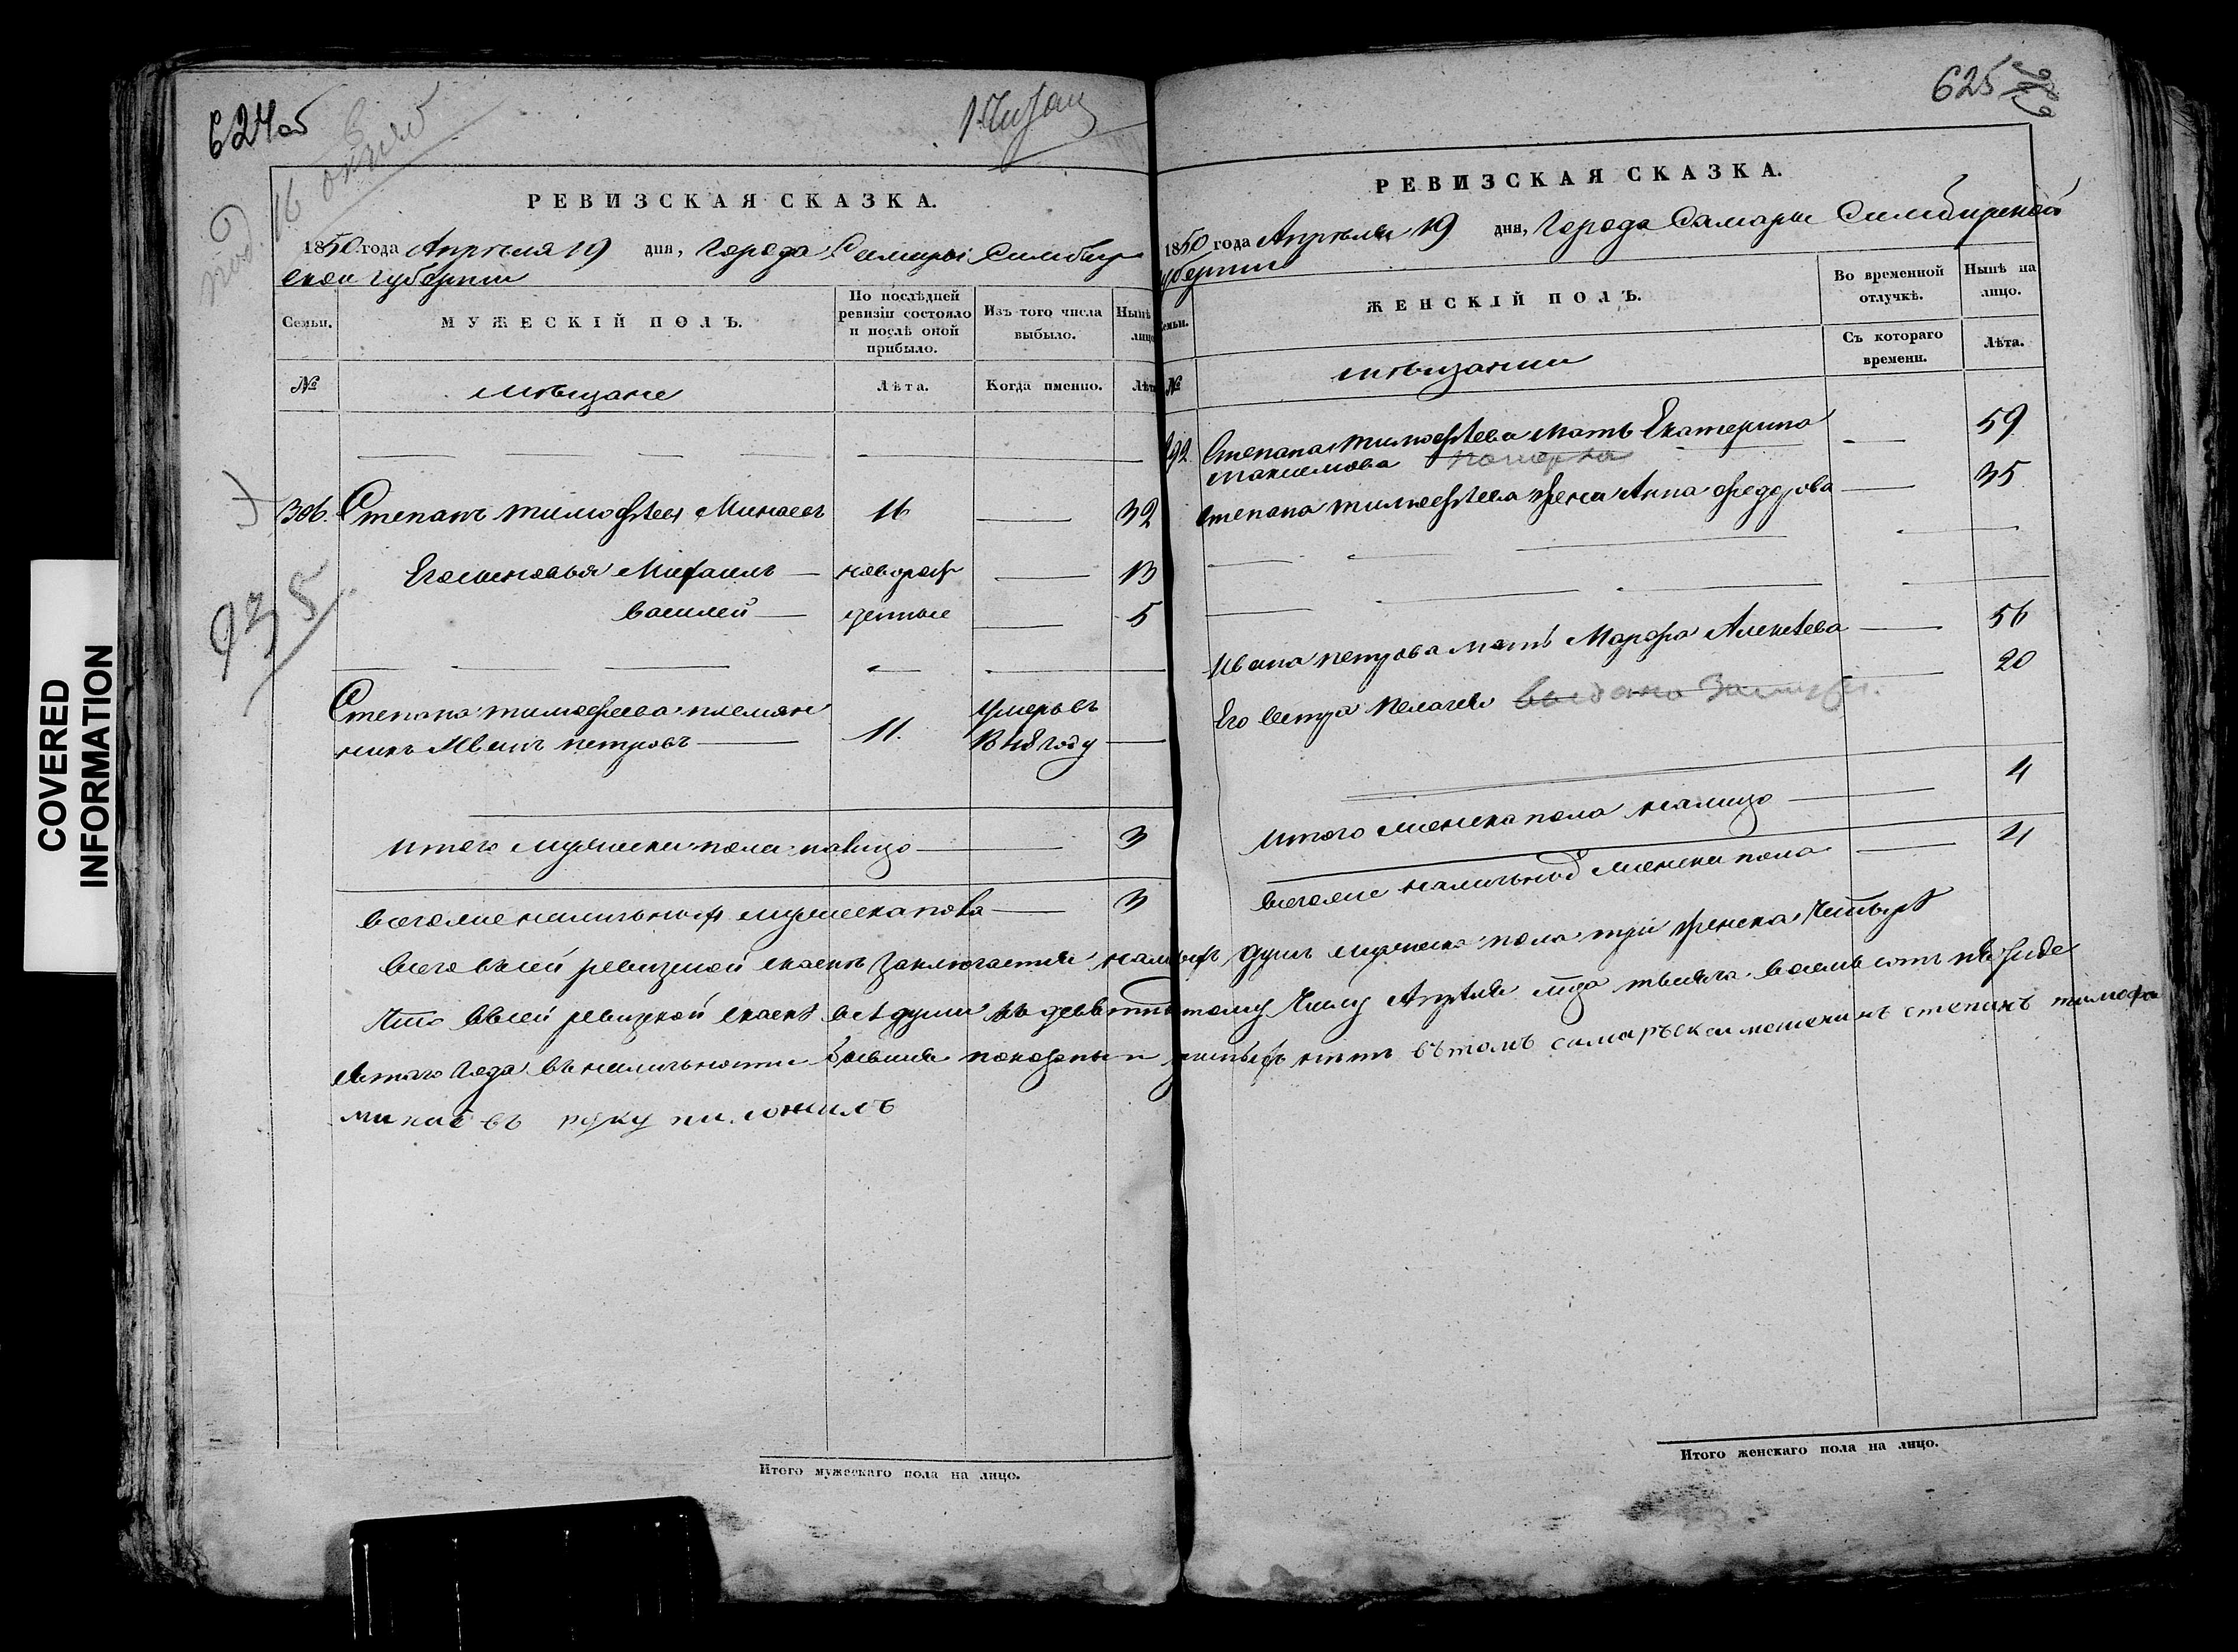 624об
под. 16 октяб
РЕВИЗСКАЯ СКАЗКА.
1850 года Апреля 19 дня, Города Самары Симбир
ской губернии
Семьи.
МУЖЕСКІЙ ПОЛЪ.
По послѣдней ревизіи состояло и послѣ оной прибыло.
Изъ того числа выбыло.
Нынѣ
лицо
№
мѣщане
Лѣта.
Когда именно.
Лѣта
306. Степанъ тимофѣевъ Минаевъ 16 32
Егосыновья Михаилъ новорож 13
василей денные 5
935
Степана тимофеева племян
никъ Иванъ петровъ 11. умеръ въ 1848 году
итого мужеска пола налицо 3
всегоже наличныхъ мужескапола 3
625
РЕВИЗСКАЯ СКАЗКА.
1850 года Апреля 19 дня, Города Самары Симбирской
губернии
Семьи.
ЖЕНСКІЙ ПОЛЪ.
Во временной отлучкѣ.
Нынѣ на лицо.
Съ котораго времени.
Лѣта.
№
мѣщанки
Степана тимофѣева мать Екатерина 59
максимова померла
степана тимофѣева жена Анна федорова 35
Ивана петрова мать Марфа Алексѣева 56
Его сестра Пелагея выдана замуж. 20
итого женска пола налицо 4
всегоже наличной женска пола 4
Всего въсей ревизской скаскѣ заключается налицо душъ мужеска пола три женска Четыре
Что Всей ревизской скаскѣ всѣ души къ девятнатцатому Числу Апрѣля тысяча восемь сотъ
пятого года въ наличности бывшия показаны и нетъ въ томъ самаръской мешенинъ степанъ тимофе
минаевъ руку приложилъ
Итого мужескаго пола на лицо.
Итого женскаго пола на лицо.
COVERED
INFORMATION